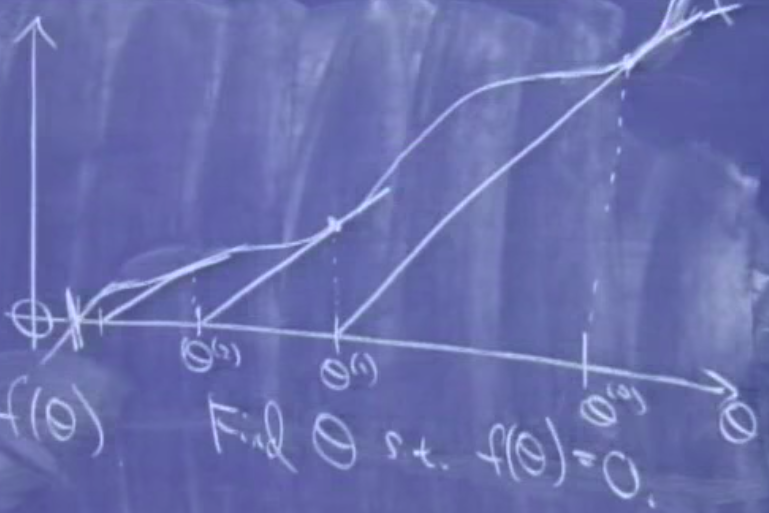 θ⁽²⁾
θ⁽¹⁾
θ⁽⁰⁾
θ
f(θ)
Find θ s.t. f(θ)=0.